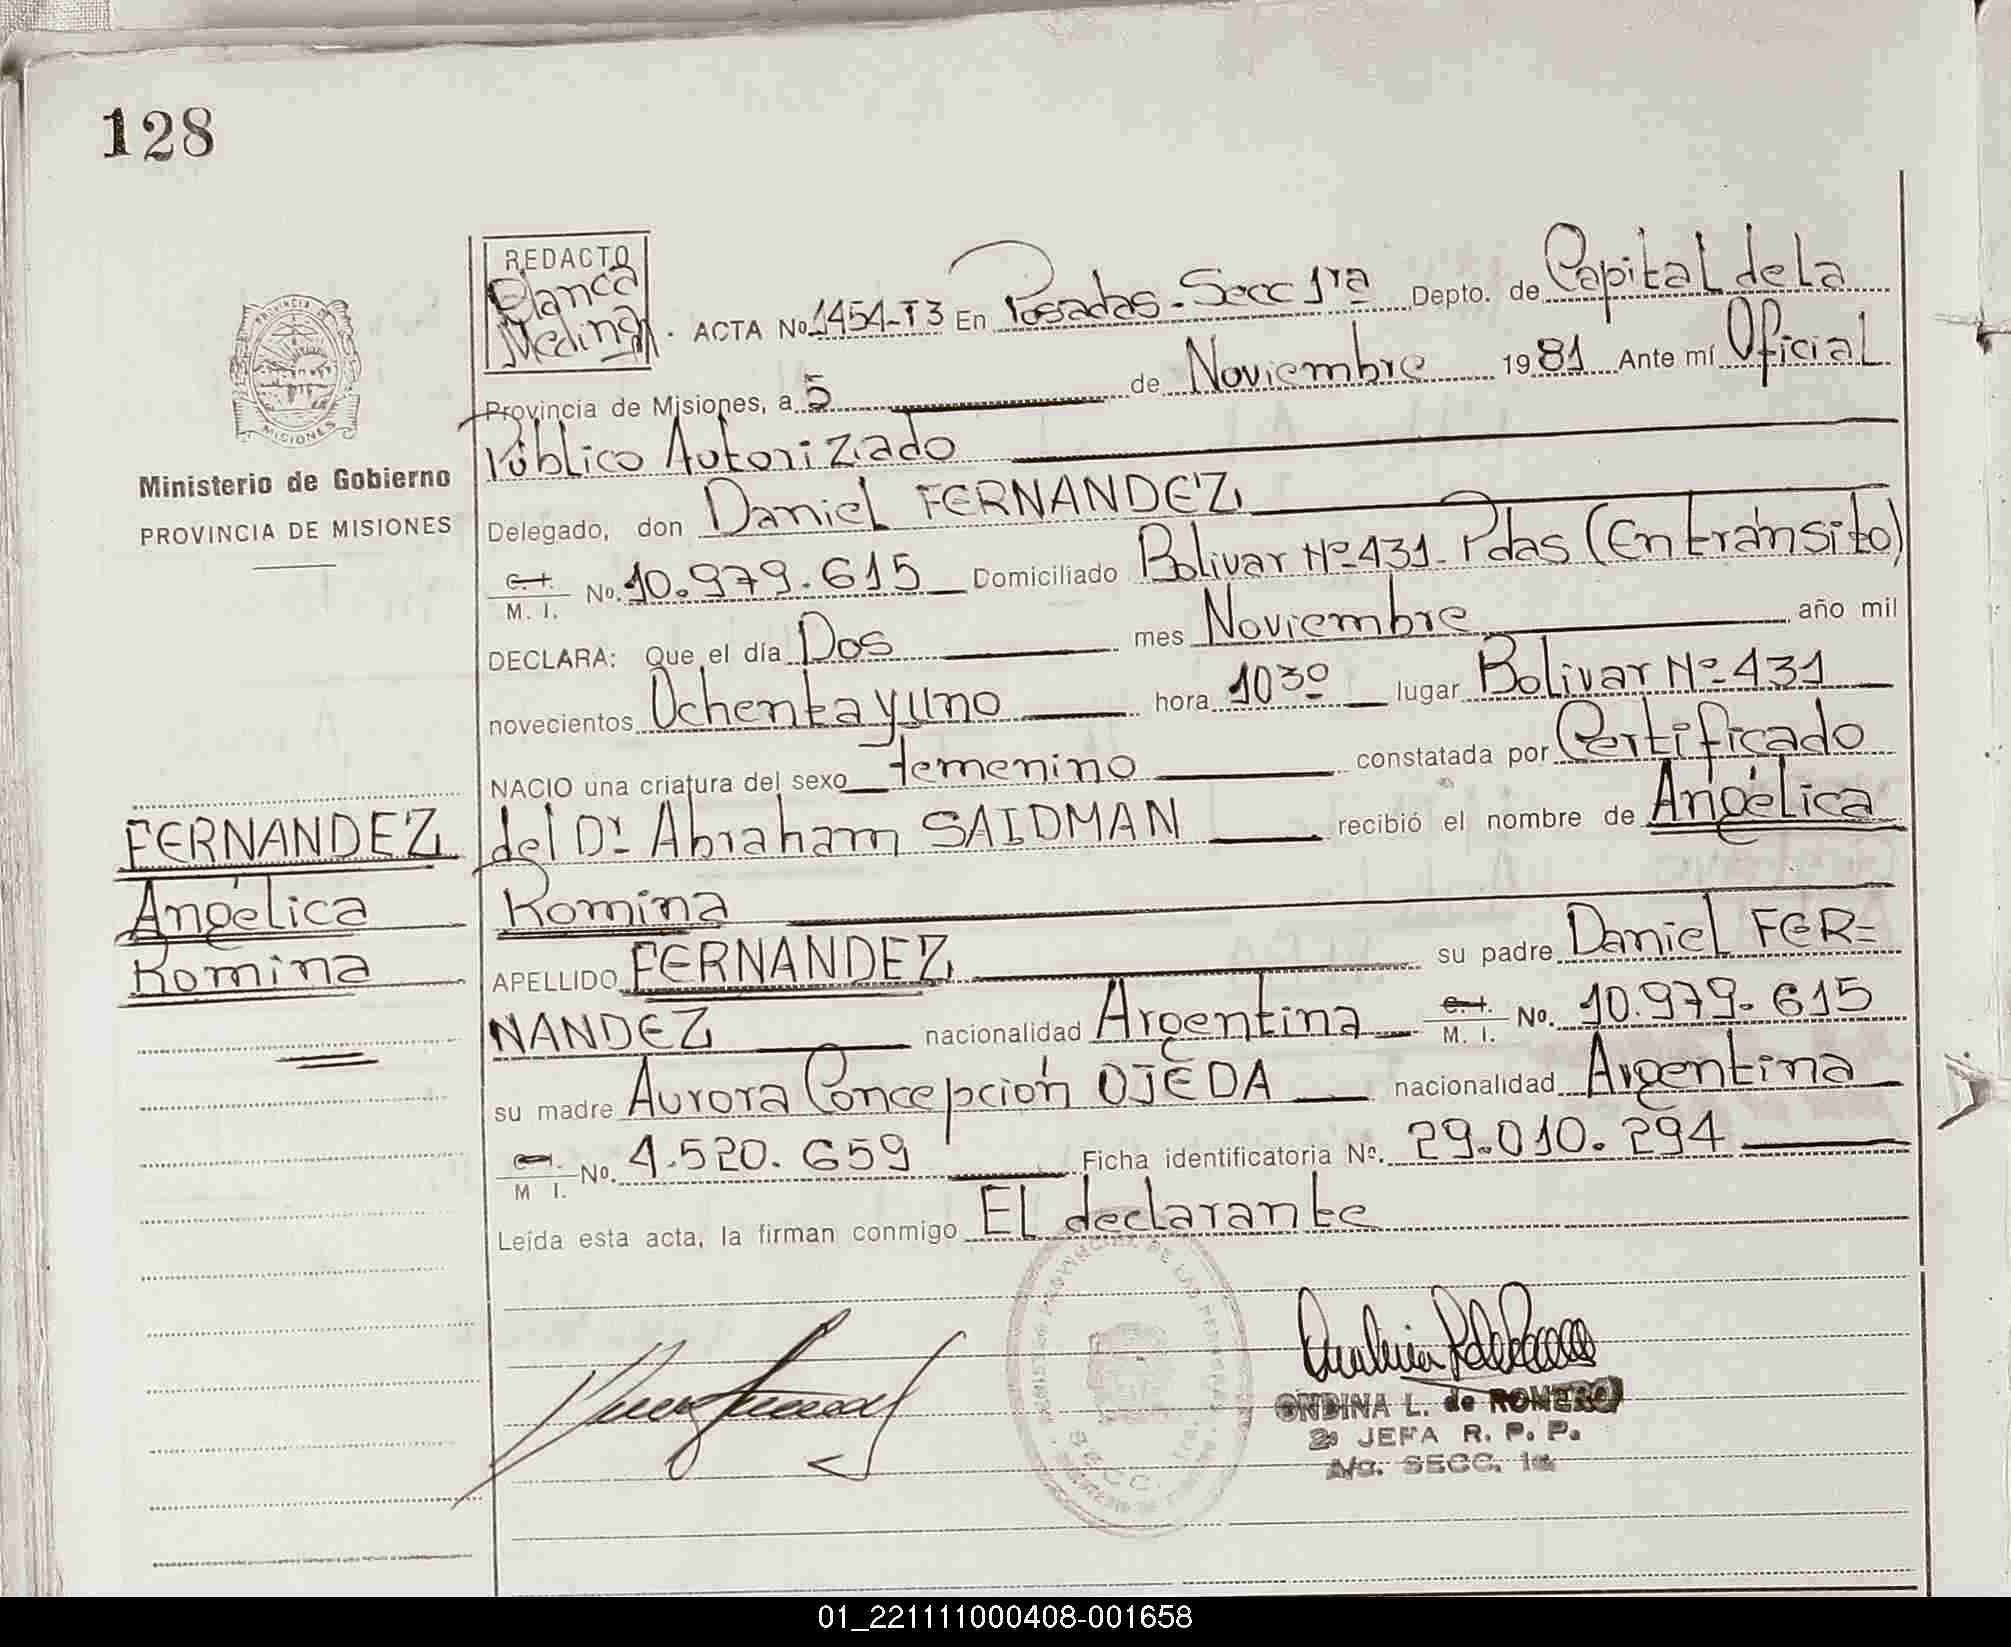 128
REDACTO
Blanca
Medina
ACTA No 1454-T3 En Posadas-Secc 1ra Depto. de Capital de la
Provincia de Misiones, a 5 de Noviembre 1981 Ante mí Oficial
Público Autorizado
Delegado, don Daniel FERNANDEZ
C. I.
M. I. No. 10.979.615 Domiciliado Bolivar Nº 431-Pdas (En tránsito)
DECLARA: Que el día Dos mes Noviembre año mil
novecientos Ochenta y uno hora 10³⁰ lugar Bolivar Nº 431
NACIO una criatura del sexo femenino constatada por Certificado
del Dr Abraham SAIDMAN recibió el nombre de Angélica
Romina
APELLIDO FERNANDEZ su padre Daniel FER=
NANDEZ nacionalidad Argentina C. I. M. I. No. 10.979.615
su madre Aurora Concepción OJEDA nacionalidad Argentina
M. I. No. 4.520.659 Ficha identificatoria No. 29.010.294
Leída esta acta, la firman conmigo El declarante
MISIONES
Ministerio de Gobierno
PROVINCIA DE MISIONES
FERNANDEZ
Angélica
Romina
ONDINA L. de ROMERO
2º JEFA R. P. P.
A/c. SECC. 1a
01_221111000408-001658